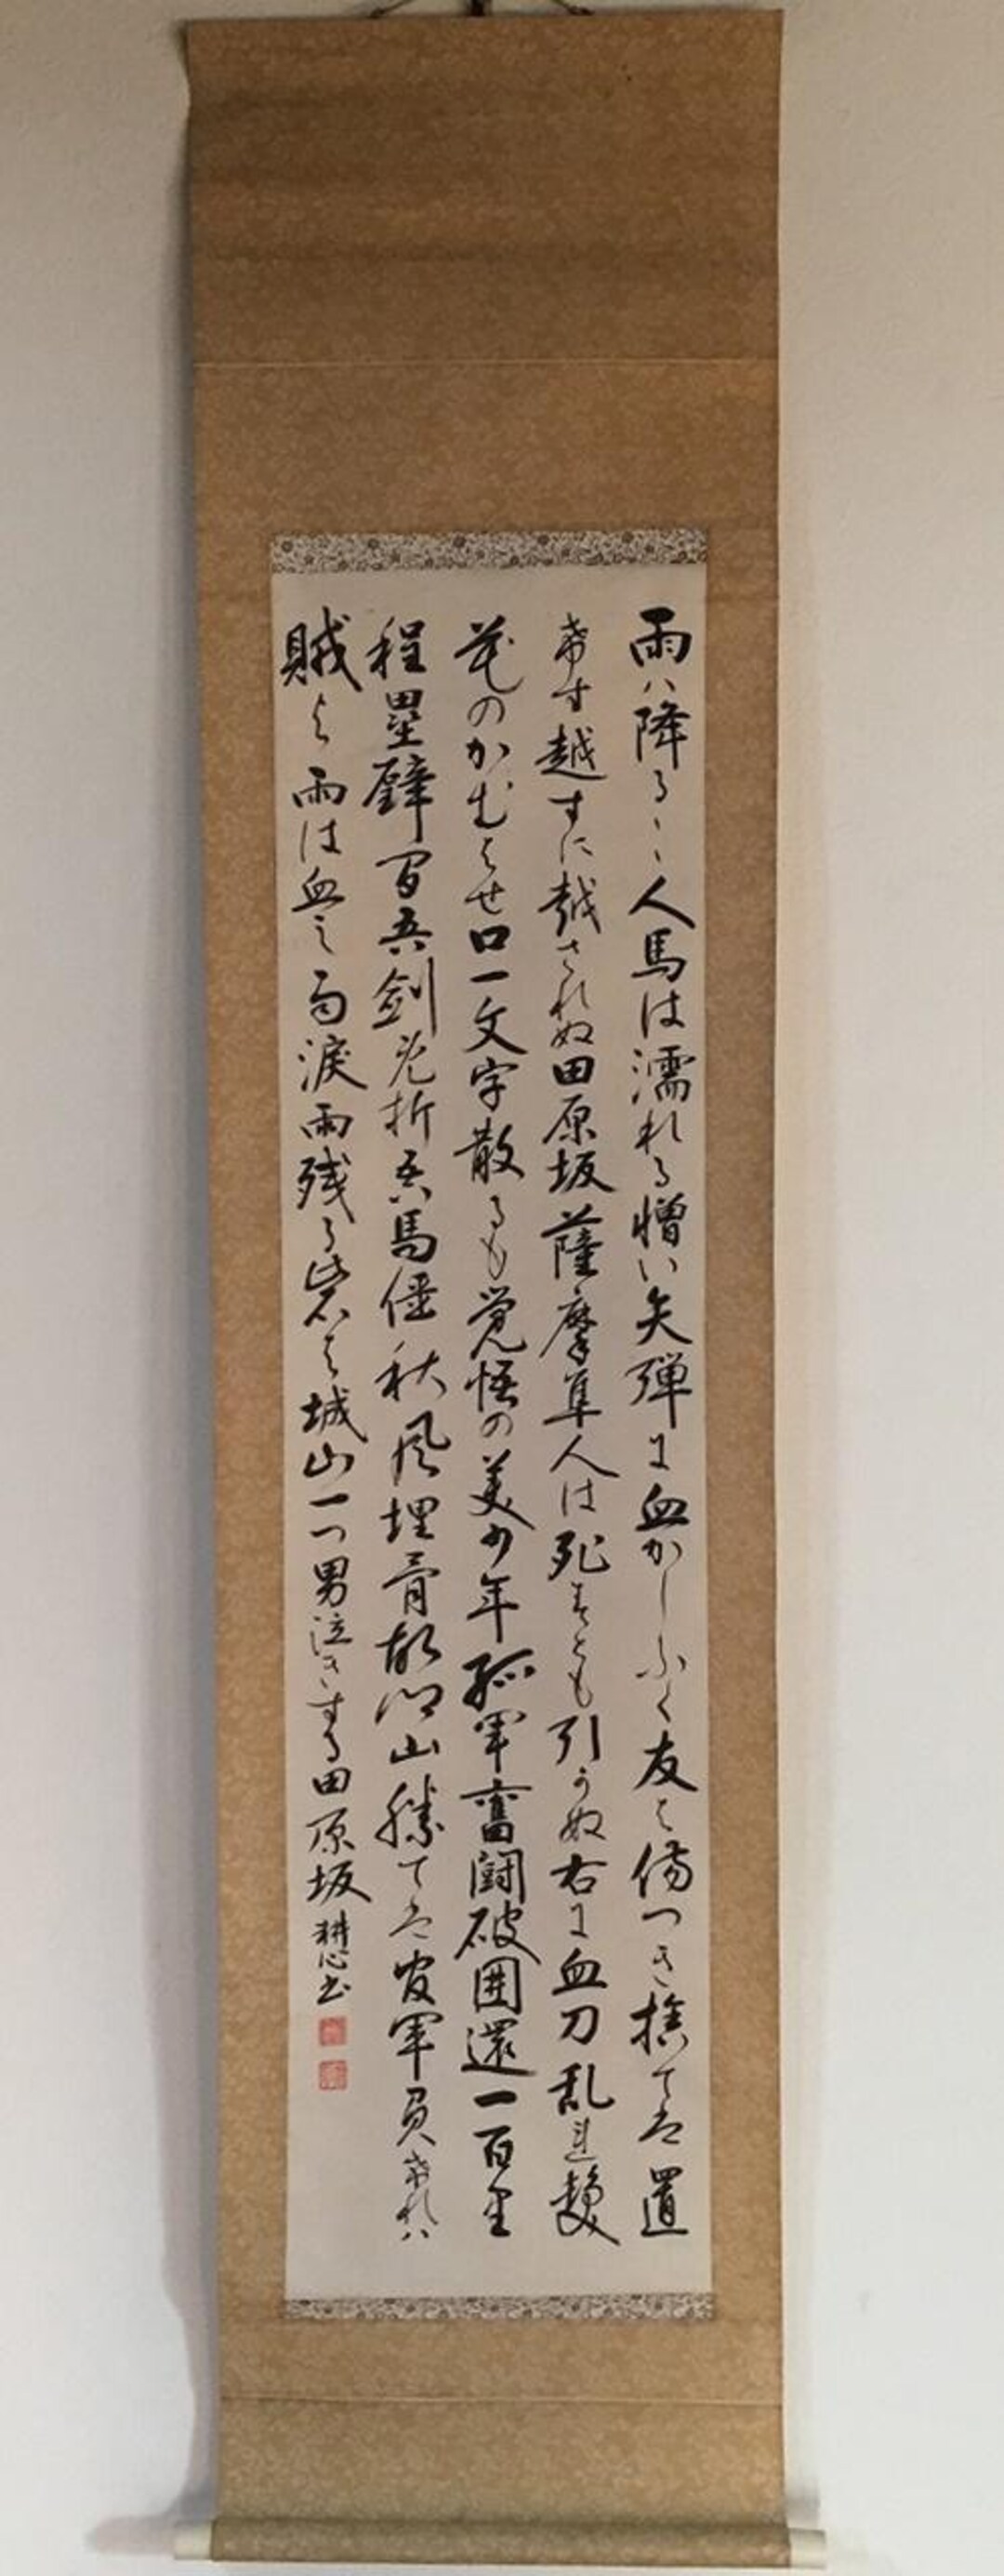 雨ハ降る〱人馬は濡れる憎い矢弾に血かしふく友は傷つき捨ては置
希す越すに越されぬ田原坂薩摩隼人は死すとも引かぬ右に血刀乱れ鬘
花のかむはせ口一文字散るも覚悟の美少年孤軍奮闘破囲還一百里
程塁壁間吾剣既折吾馬僵秋風埋骨故郷山勝ては官軍負希れハ
賊よ雨は血之雨涙雨残るは城山一つ男泣きする田原坂 耕心書